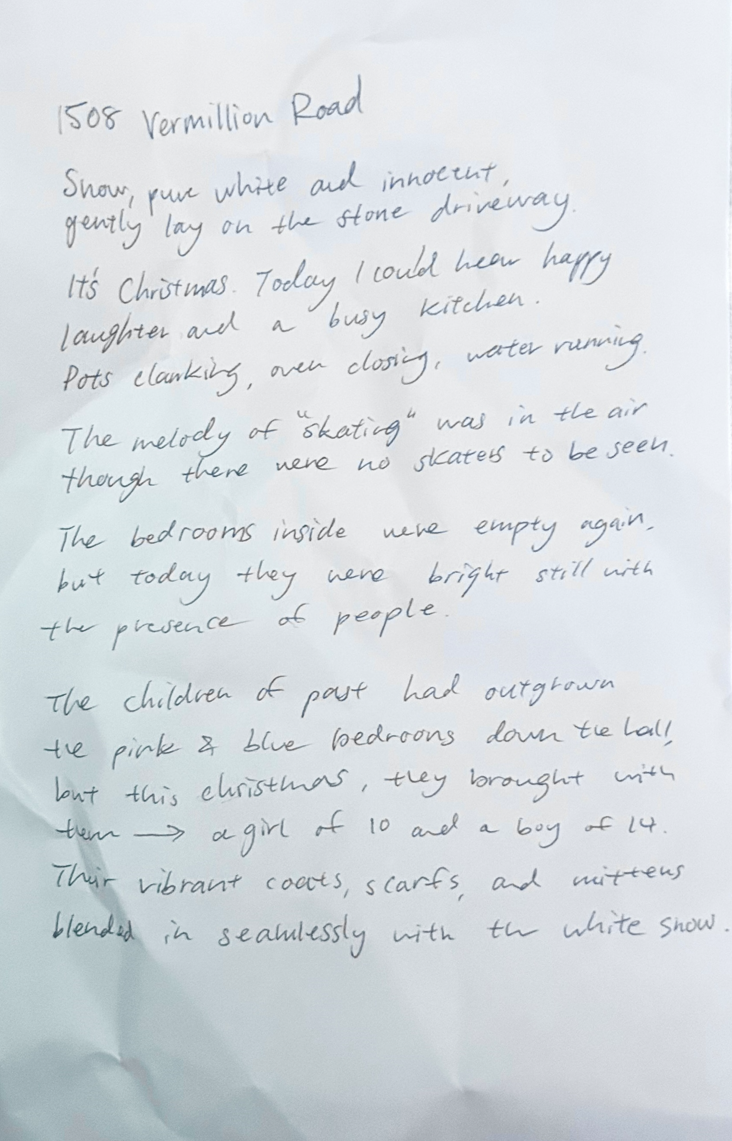 1508 Vermillion Road
Snow, pure white and innocent,
gently lay on the stone driveway.
It's Christmas. Today I could hear happy
laughter and a busy kitchen.
Pots clanking, oven closing, water running.
The melody of "skating" was in the air
though there were no skaters to be seen.
The bedrooms inside were empty again,
but today they were bright still with
the presence of people.
The children of past had outgrown
the pink & blue bedrooms down the hall,
but this christmas, they brought with
them → a girl of 10 and a boy of 14.
Their vibrant coats, scarfs, and mittens
blended in seamlessly with the white snow.